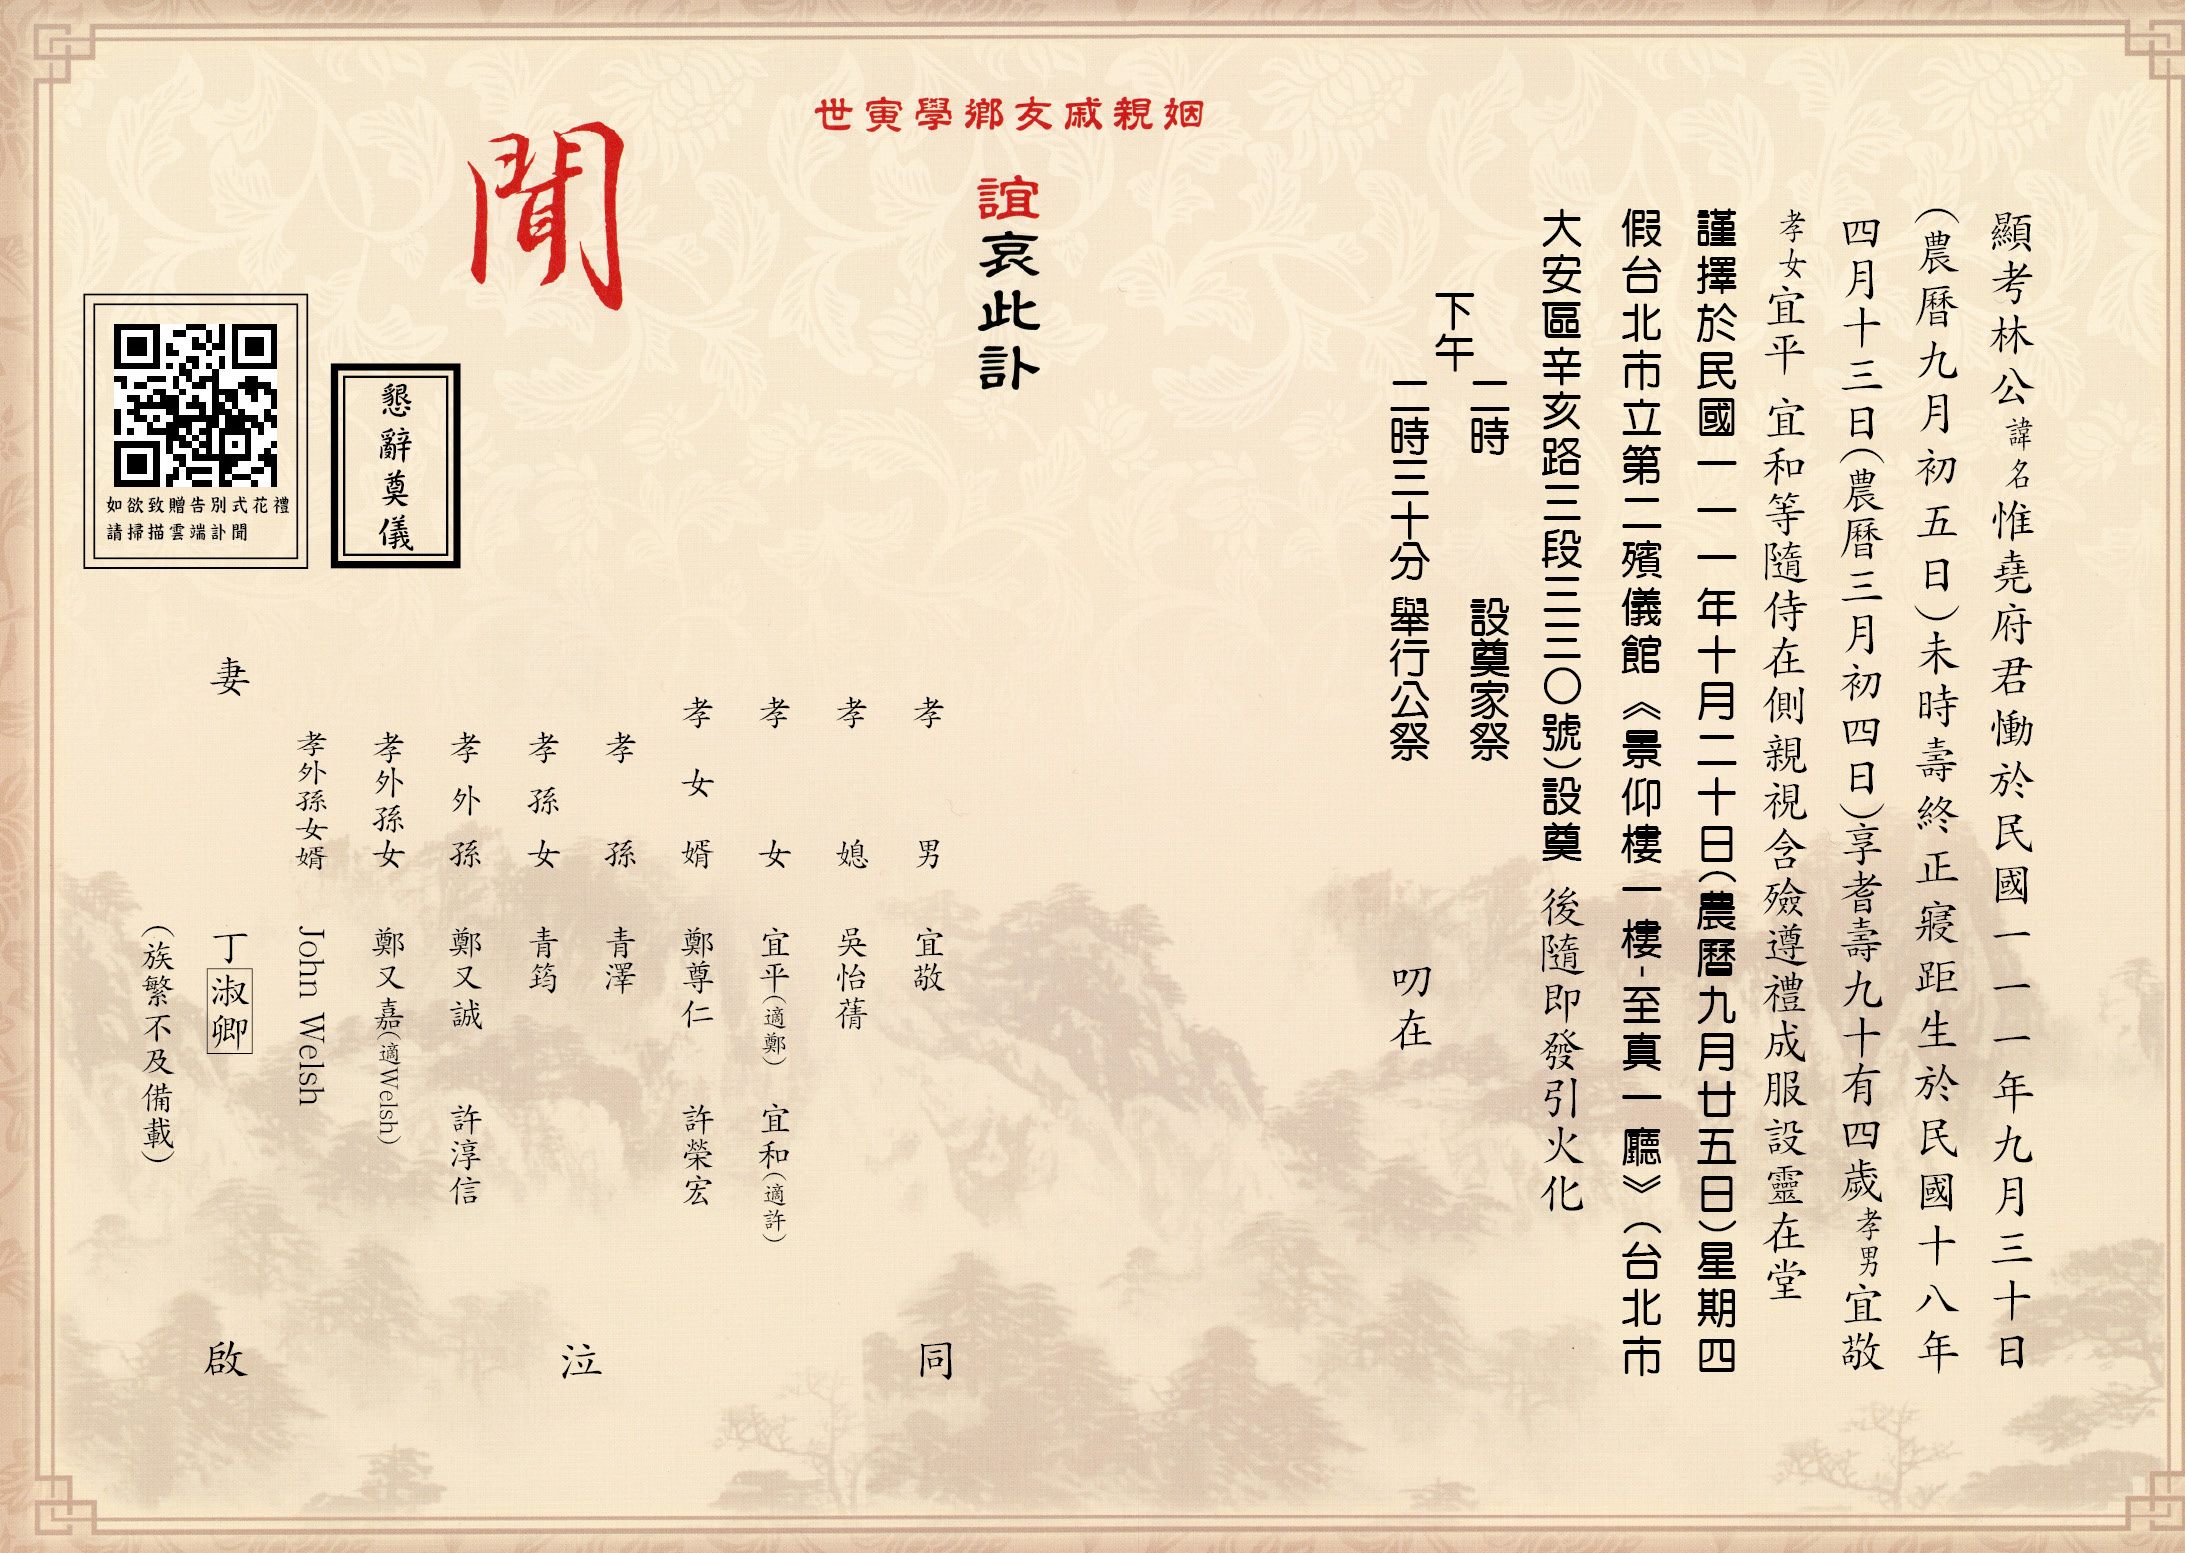 顯考林公諱名惟堯府君慟於民國一一一年九月三十日
(農曆九月初五日)未時壽終正寢距生於民國十八年
四月十三日(農曆三月初四日)享耆壽九十有四歲孝男宜敬
孝女宜平 宜和等隨侍在側親視含殮遵禮成服設靈在堂
謹擇於民國一一一年十月二十日(農曆九月廿五日)星期四
假台北市立第二殯儀館《景仰樓一樓-至真一廳》(台北市
大安區辛亥路三段三三〇號)設奠 後隨即發引火化
下午
二時 設奠家祭
二時三十分 舉行公祭
叨在
世寅學鄉友戚親姻
誼哀此訃
聞
孝男 宜敬
孝媳 吳怡蒨
孝女 宜平(適鄭) 宜和(適許)
孝女婿 鄭尊仁 許榮宏
孝孫 青澤
孝孫女 青筠
孝外孫 鄭又誠 許淳信
孝外孫女 鄭又嘉(適Welsh)
孝外孫女婿 John Welsh
妻 丁淑卿
(族繁不及備載)
同泣啟
懇辭奠儀
如欲致贈告別式花禮
請掃描雲端訃聞